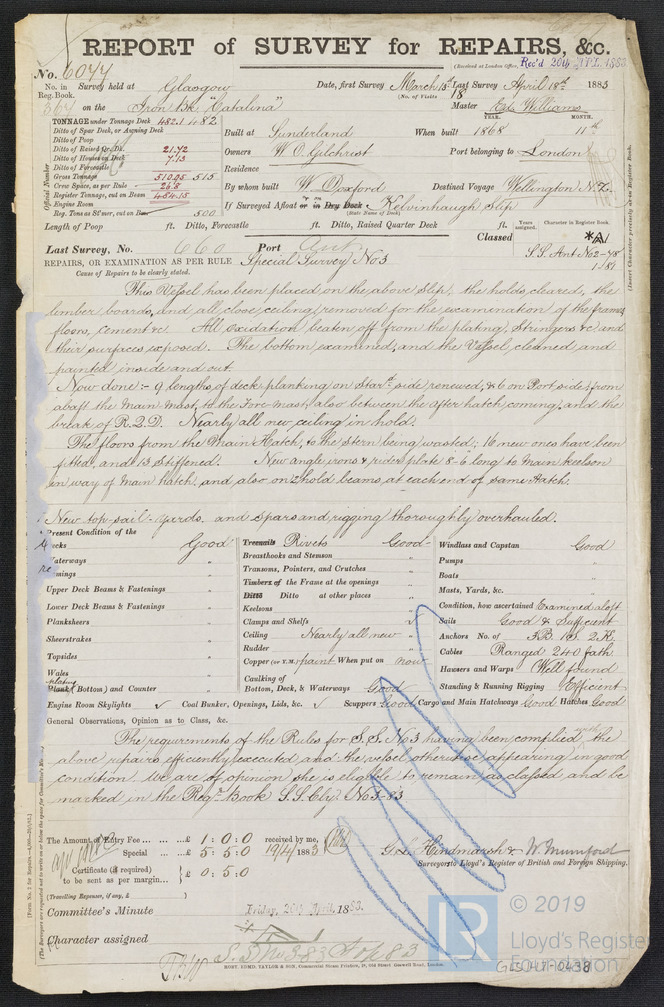 REPORT of SURVEY for REPAIRS, &c.
(Received at London Office, Rec'd 20th APL. 1883
No. 6077
No. in Reg. Book. Survey held at Glasgow Date, first Survey March 13th Last Survey April 18th 1883
(No. of Visits 18
367 on the Iron Bk "Catalina" Master Ed. Williams
TONNAGE under Tonnage Deck 482.1 482
Ditto of Spar Deck, or Awning Deck
Ditto of Poop
Ditto of Raised Qr. Dk. 21.72
Ditto of Houses on Deck 7.13
Ditto of Forecastle
Gross Tonnage 510.95 515
Crew Space, as per Rule 26.8
Register Tonnage, cut on Beam 484.15
Engine Room
Reg. Tons as St'mer, cut on Bm 500
Official Number
YEAR. MONTH.
Built at Sunderland When built 1868 11th
Owners W. O. Gilchrist Port belonging to London
Residence
By whom built W. Doxford Destined Voyage Wellington N.Z.
If Surveyed Afloat or in Dry Dock Kelvinhaugh Slip
(State Name of Dock)
Length of Poop ft. Ditto, Forecastle ft. Ditto, Raised Quarter Deck ft.
Years assigned. Character in Register Book.
(Insert Character precisely as in Register Book.
Last Survey, No. 660 Port Ant. Classed *A1
S.S. Ant No 2-78
1.81
REPAIRS, OR EXAMINATION AS PER RULE Special Survey No 3
Cause of Repairs to be clearly stated.
This Vessel has been placed on the above Slip, the holds cleared, the
limber boards, and all close ceiling removed for the examination of the frames,
floors, cement &c All Oxidation beaten off from the plating, Stringers &c and
their surfaces exposed. The bottom examined, and the Vessel cleaned and
painted inside and out
Now done:- 9 lengths of deck planking on Starbd side renewed, & 6 on Port side, from
abaft the Main-Mast, to the Fore-Mast, also between the after hatch coming, and the
break of R.Q.D. Nearly all new ceiling in hold.
The floors from the Main Hatch, to the stern being wasted; 16 new ones have been
fitted, and 13 Stiffened. New angle irons & rider plate 8-6 long to Main keelson
in way of Main hatch, and also on 2 hold beams, at each end of same Hatch.
New top-sail-yards, and Spars and rigging thoroughly overhauled.
Present Condition of the
Decks Good
Waterways "
Upper Deck Beams & Fastenings "
Lower Deck Beams & Fastenings "
Planksheers "
Sheerstrakes "
Topsides "
Wales "
Plating Plank (Bottom) and Counter "
Engine Room Skylights ✓ Coal Bunker, Openings, Lids, &c. ✓ Scuppers Good Cargo and Main Hatchways Good Hatches Good
Treenails Rivets Good
Breasthooks and Stemson "
Transoms, Pointers, and Crutches "
Timbers of the Frame at the openings "
Ditto Ditto at other places "
Keelsons "
Clamps and Shelfs "
Ceiling Nearly all new "
Rudder "
Copper (or Y.M.) paint When put on now
Caulking of
Bottom, Deck, & Waterways Good
Windlass and Capstan Good
Pumps "
Boats "
Masts, Yards, &c. "
Condition, how ascertained Examined aloft
Sails Good & Sufficient
Anchors No. of 3B. 1S. 2K.
Cables Ranged 240 fath
Hawsers and Warps Well found
Standing & Running Rigging Efficient
General Observations, Opinion as to Class, &c.
The requirements of the Rules for S.S. No 3 having been complied with the
above repairs efficiently executed and the vessel otherwise appearing in good
condition. We are of opinion she is eligible to remain as classed and be
marked in the Regr Book S.S. Cly. No 3-83
The Amount of Entry Fee £ 1 : 0 : 0 received by me,
Special £ 5 : 5 : 0 19/4/1883
Certificate (if required) to be sent as per margin £ 0 : 5 : 0
(Travelling Expenses, if any, £ )
G. L. Hindmarsh & W. Mumford
Surveyors to Lloyd's Register of British and Foreign Shipping.
Committee's Minute Friday, 20th April, 1883.
Character assigned
S.S. No 3-83
PORT, EDMD. TAYLOR & SON, Commercial Steam Printers
© 2019
Lloyd's Register
Foundation
LR
GLS-47-0438